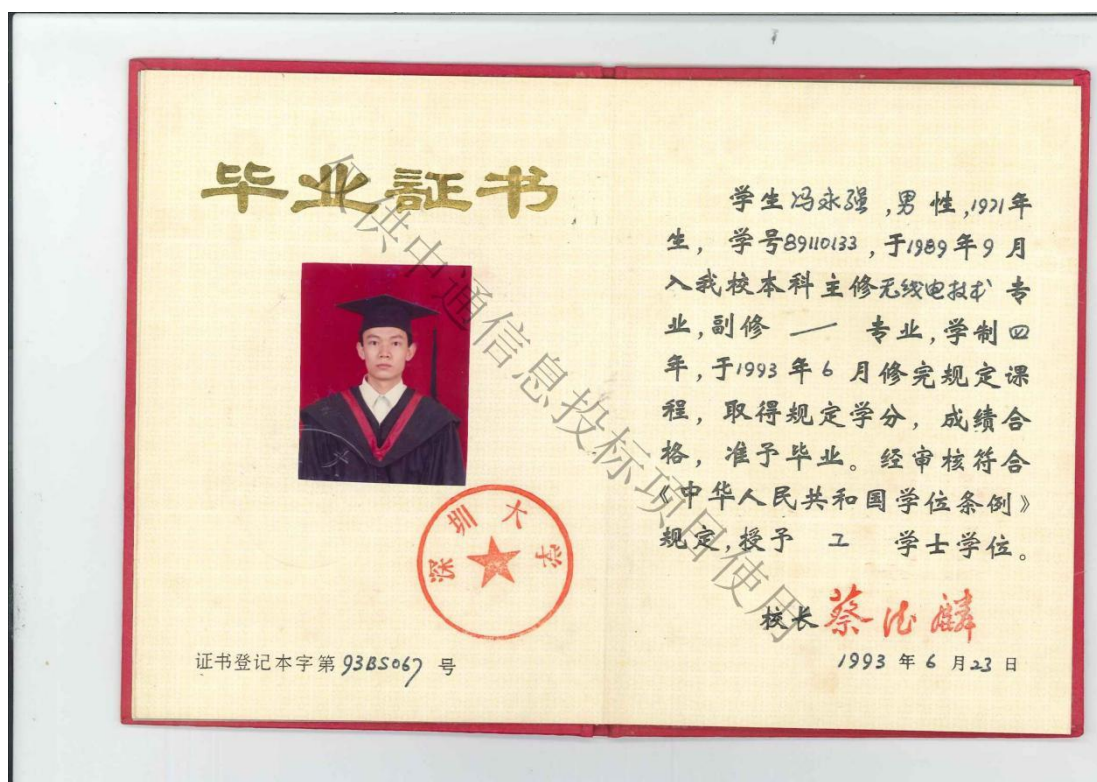 毕业証书
仅供中通信息投标项目使用
深圳大学
证书登记本字第93BS067号
学生冯永强,男性,1971年
生,学号89110133,于1989年9月
入我校本科主修无线电技术专
业,副修 — 专业,学制四
年,于1993年6月修完规定课
程,取得规定学分,成绩合
格,准予毕业。经审核符合
《中华人民共和国学位条例》
规定,授予 工 学士学位。
校长 蔡德麟
1993年6月23日